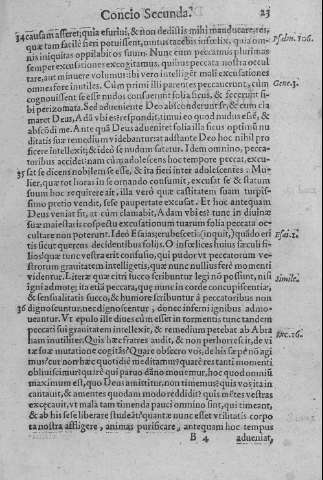 Concio Secunda. 23
34 causam asseret; quia esuriui, & non dedistis mihi manducare, res,
quæ tam facilè fieri potuissent, omnis tacebis infœlix, quia om-
nis iniquitas oppilabit os suum. Nunc cum peccamus plurimas
semper excusationes excogitamus, quibus peccata nostra occul
tare, aut minuere volumus: ibi vero intelliget mali excusationes
omnes fore inutiles. Cùm primi illi parentes peccauerunt, cùm
cognouissent se esse nudos consuerunt folia ficus, & fecerunt si-
bi perizomata. Sed adueniente Deo absconderunt se, & cum cla
maret Deus, Adã vbi es? respondit, timui eo quod nudus essẽ, &
abscõdi me. Ante quã Deus adueniret folia illa ficus optimũ nu
ditatis suæ remedium videbantur at adstante Deo hoc nihil pro
ficere intellexit, & ideo se nudum fatetur. Idem omnino, pecca-
toribus accidet: nam cùm adolescens hoc tempore peccat, excu-
35 sat se dicens nobilem se esse, & ita fieri inter adolescentes. Mu-
lier, quæ tot horas in se ornando consumit, excusat se & statum
suum hoc requirere ait, illa verò quæ castitatem suam turpis-
simo pretio vendit, sese paupertate excusat. Et hoc antequam
Deus veniat fit, at cum clamabit, Adam vbi es? tunc in diuinæ
suæ maiestatis conspectu excusationum tuarum folia peccata oc-
cultare non poterunt. Ideò Esaias, erubescetis (inquit,) quãdo eri
tis sicut quercus decidentibus folijs. O infœlices huius sæculi fi-
lios! quæ tunc vestra erit confusio, qui pudor vt peccatorum ve-
strorum grauitatem intelligetis, quæ nunc nullius ferè momenti
videntur. Literæ quæ citri succo scribuntur legi nõ possunt, nisi
igni admotę; ita etiã peccata, quę nunc in corde concupiscentiæ,
& sensualitatis succo, & humore scribuntur à peccatoribus non
36 dignoscuntur, nec dignoscentur, donec inferni ignibus admo-
ueantur. Vt epulo ille diues cùm esset in tormentis tunc tandem
peccati sui grauitatem intellexit, & remedium petebat ab Abra
ham inutiliter. Quis hæc fratres audit, & non perhorrescit, de vi
tæ suæ mutatione cogitãs? Quare obsecro vos, de his sæpè nõ agi
mus? cur non hæc quotidie meditamur? quarè res tanti momenti
obliuiscimur? quarè qui paruo dãno mouemur, hoc quod omniũ
maximum est, quo Deus amittitur, non timemus? quis vos ita in
cantauit, & amentes quodam modo reddidit? quis mẽtes vestras
excęcauit, vt mala tam timenda pauci omnino sint, qui timeant,
& ab his sese liberare studeãt? quantæ nunc esset vtilitatis corpo
ra nostra affligere, animas purificare, antequam hoc tempus
B 4 adueniat,
Psalm. 106.
Gene. 3.
Esai. 1.
Simile.
Luc. 16.